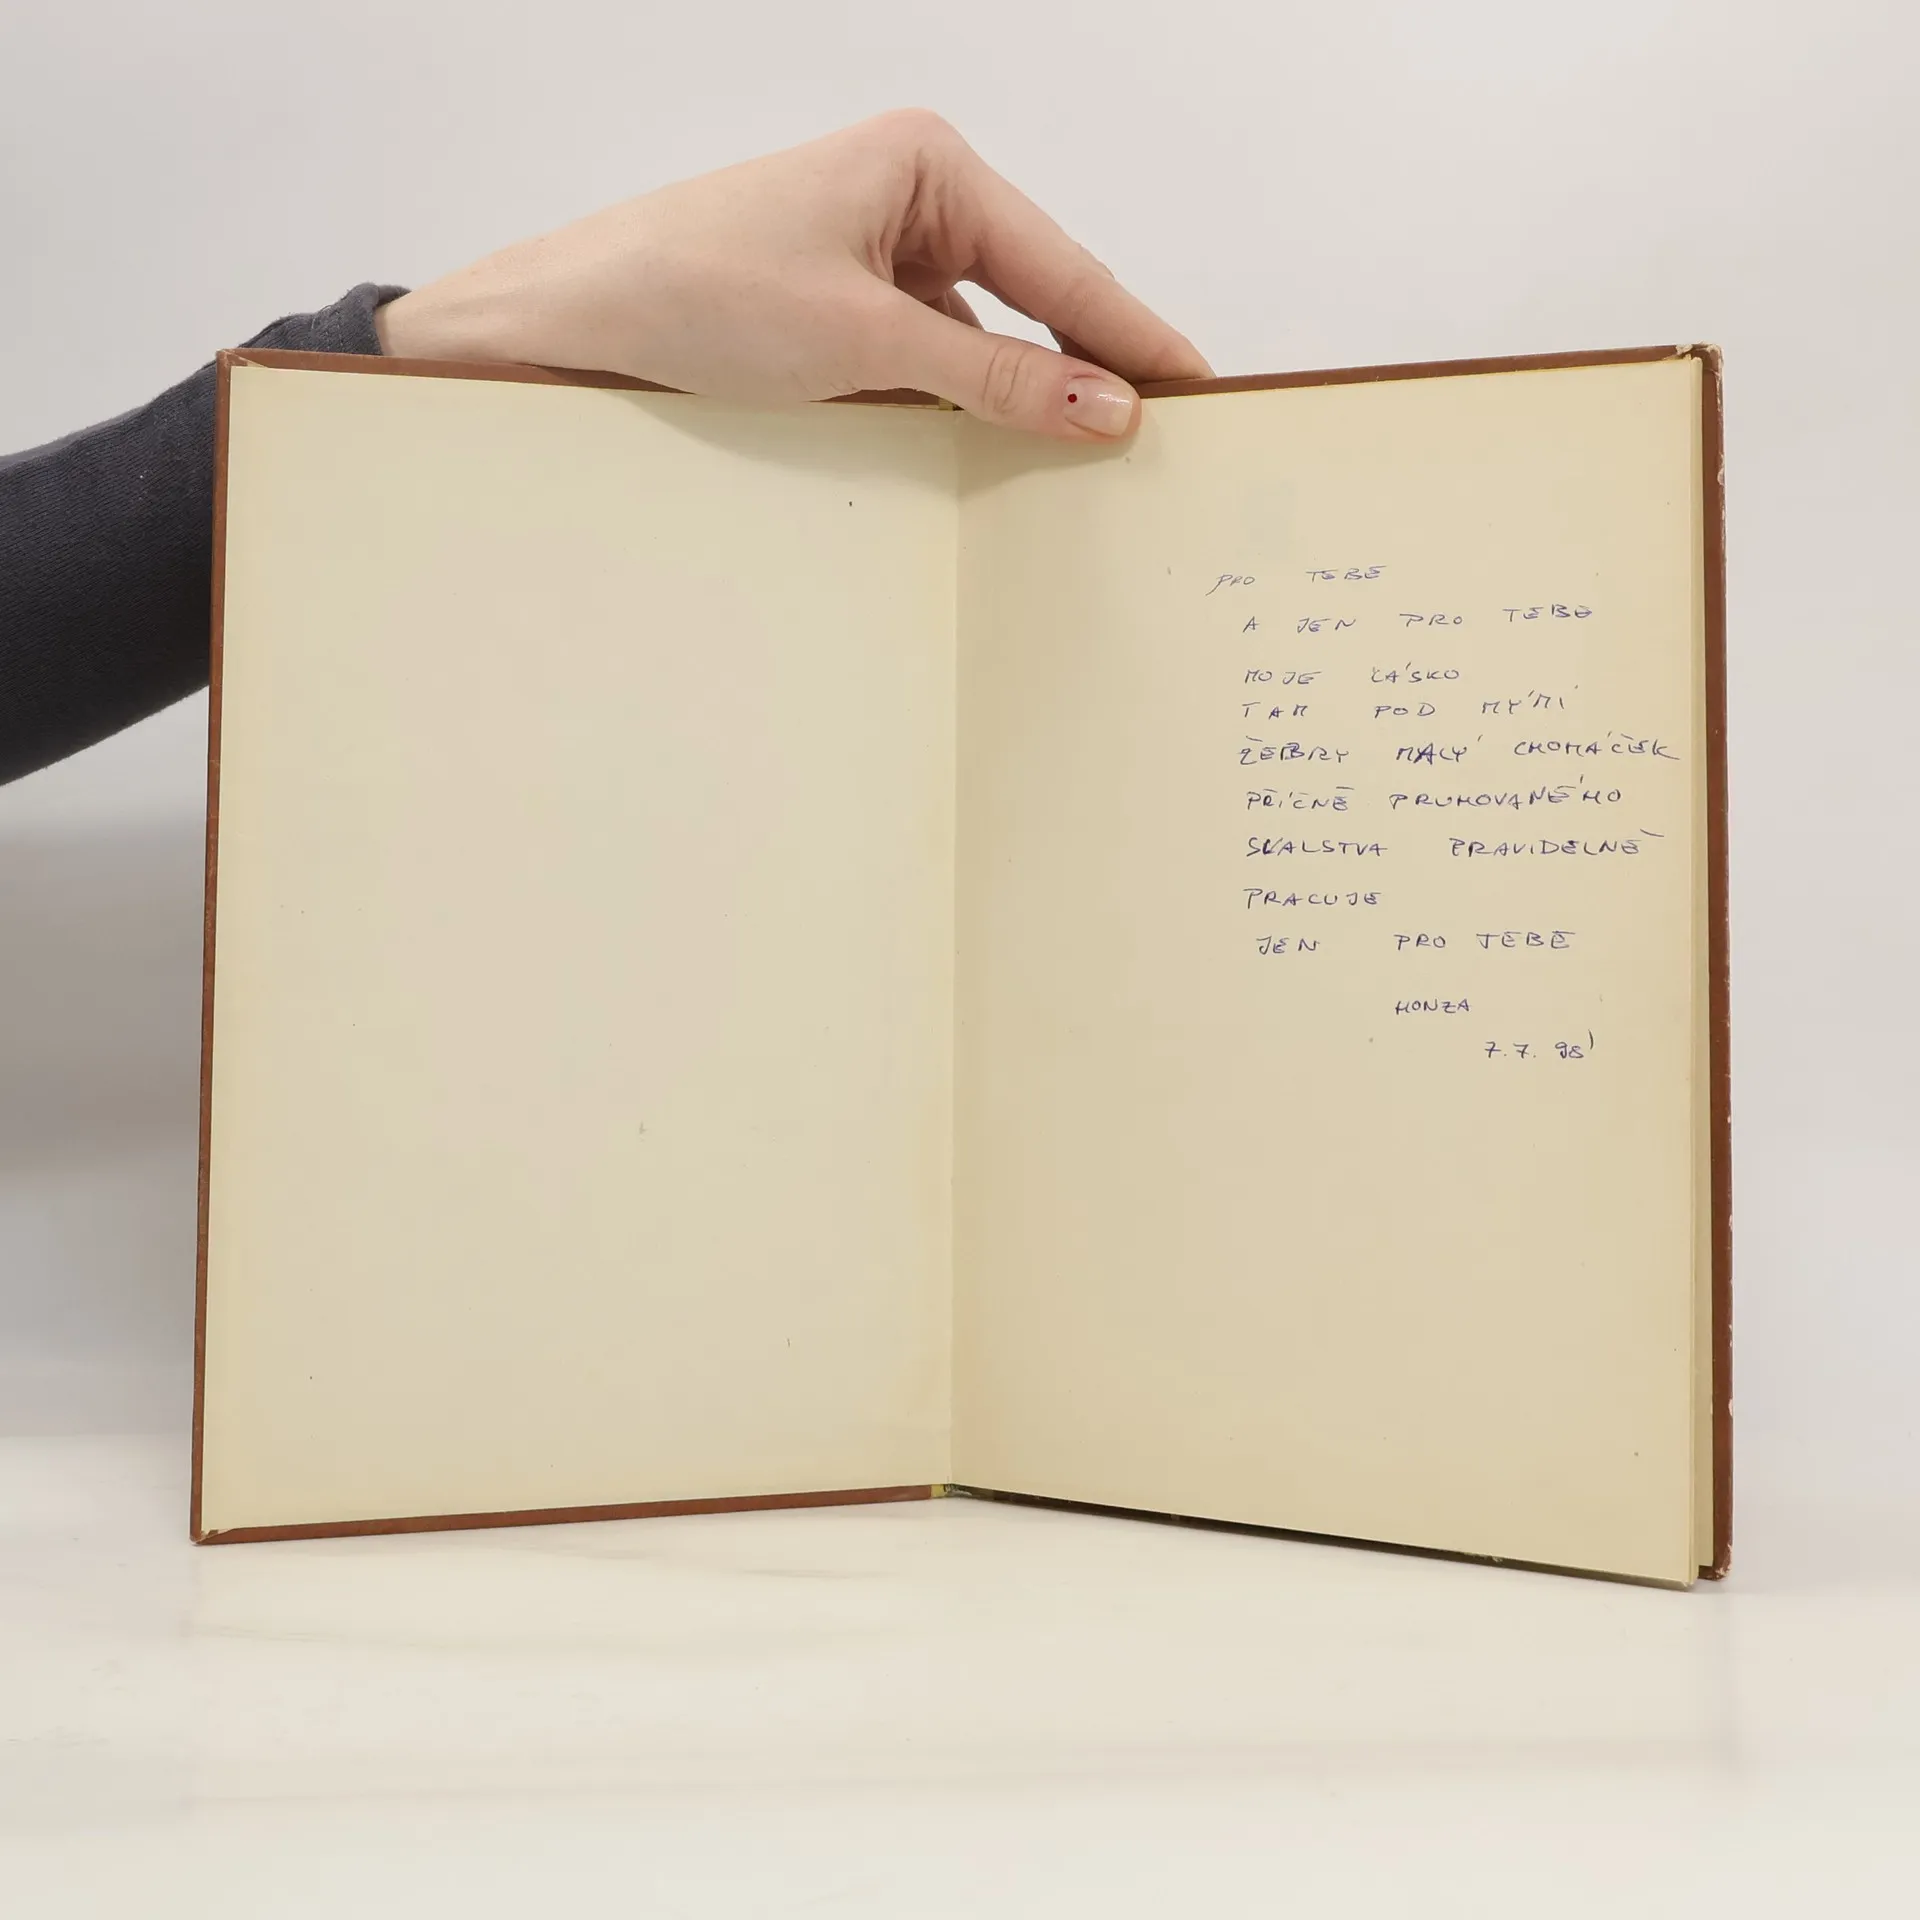 PRO TEBE
A JEN PRO TEBE
MOJE LÁSKO
TAM POD MÝMI
ŽEBRY MALÝ CHOMÁČEK
PŘÍČNĚ PRUHOVANÉHO
SVALSTVA PRAVIDELNĚ
PRACUJE
JEN PRO TEBE
HONZA
7.7. 98'